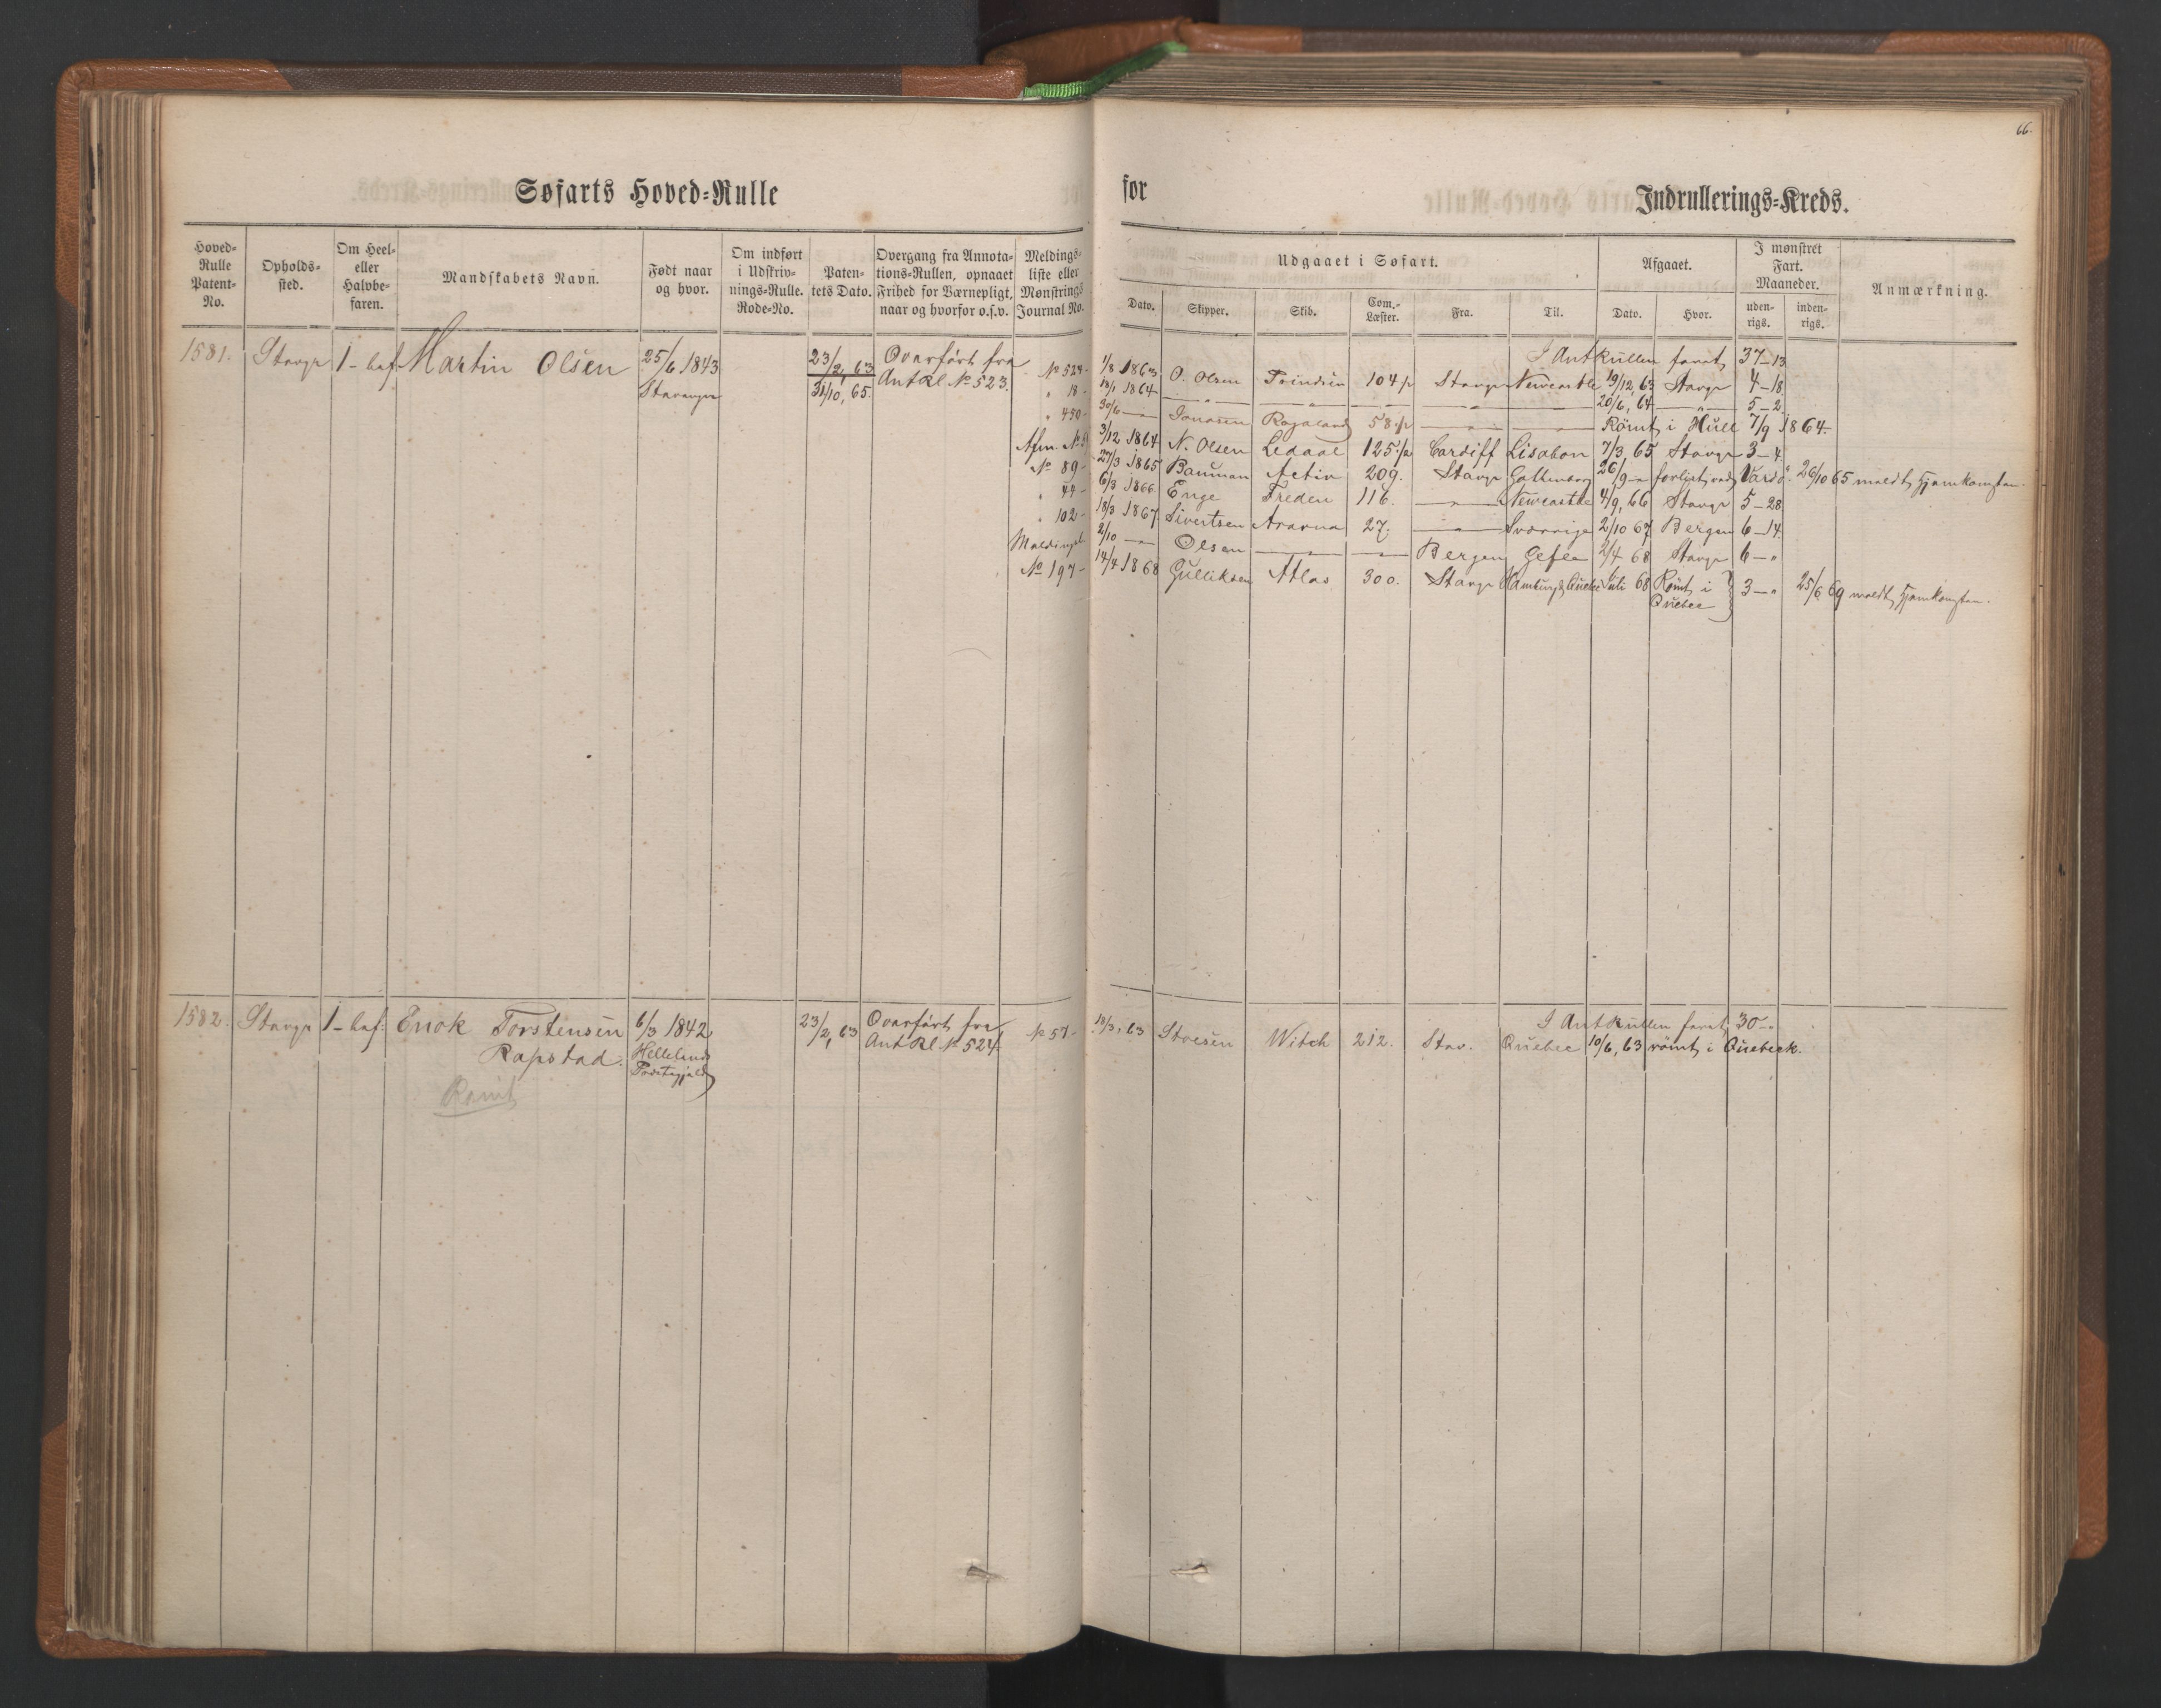 66.
Søfarts Hoved-Rulle for Indrullerings-Kreds.
Hoved-Rulle Patent-No. Opholds-sted. Om Heel- eller Halvbe-faren. Mandskabets Navn. Født naar og hvor. Om indført i Udskriv-nings-Rulle. Rode-No. Paten-tets Dato. Overgang fra Annota-tions-Rullen, opnaaet Frihed for Værnepligt, naar og hvorfor o.s.v. Meldings-liste eller Mønstrings Journal No.
Udgaaet i Søfart. Afgaaet. I mønstret Fart. Maaneder. Anmærkning.
Dato. Skipper. Skib. Com.-Læster. Fra. Til. Dato. Hvor. uden-rigs. inden-rigs.
1581. Stavgr 1-bef. Martin Olsen 25/6 1843 23/2, 63 Overført fra I Ant Rullen faret 37-13
Stavanger 31/10, 65. Ant Rl. No 523.
No 523- 1/8 1863 O. Olsen 104 Stavgr Newcastle 19/12, 63 Stavgr 4-18
" 18- 13/1 1864 — " — — " — — " — — " — 20/6, 64 — " — 5-2
" 450- 30/6 — Jonasen Rogaland 58 — " — — " — Römt i Hull 7/9 1864.
3/12 1864 N. Olsen Ledaal 125 Cardiff Lisabon 7/3, 65 Stavgr 3-4
No 89- 27/3 1865 Bauman Activ 209. Stavgr Gothenborg 26/9 - forlist ved Vardö. 26/10 65 meldt Hjemkomsten.
" 44- 6/3 1866 Enge Freden 116. — " — Newcastle 4/9, 66 Stavgr 5-28
" 102- 18/3 1867 Sivertsen 27. — " — Sverrige 2/10 67 Bergen 6-14
Meldingsl. 2/10 — Olsen — " — — " — Bergen Gefle 2/4 68 Stavgr 6-"
No 197- 14/4 1868 Gulliksen Atlas 300. Stavgr Hamburg & Quebec Juli 68 Rømt i Quebec 3-" 25/6 69 meldt Hjemkomsten.
1582. Stavgr 1-bef. Enok Torstensen 6/3 1842 23/2, 63 Overført fra No 57- 18/3, 63 Stoesen Witch 212. Stav. Quebec 10/6, 63 römt i Quebeck.
I Ant Rullen faret 30-"
Rapstad. Hellelands Ant Rl. No 524.
Præstegjeld
Rømt